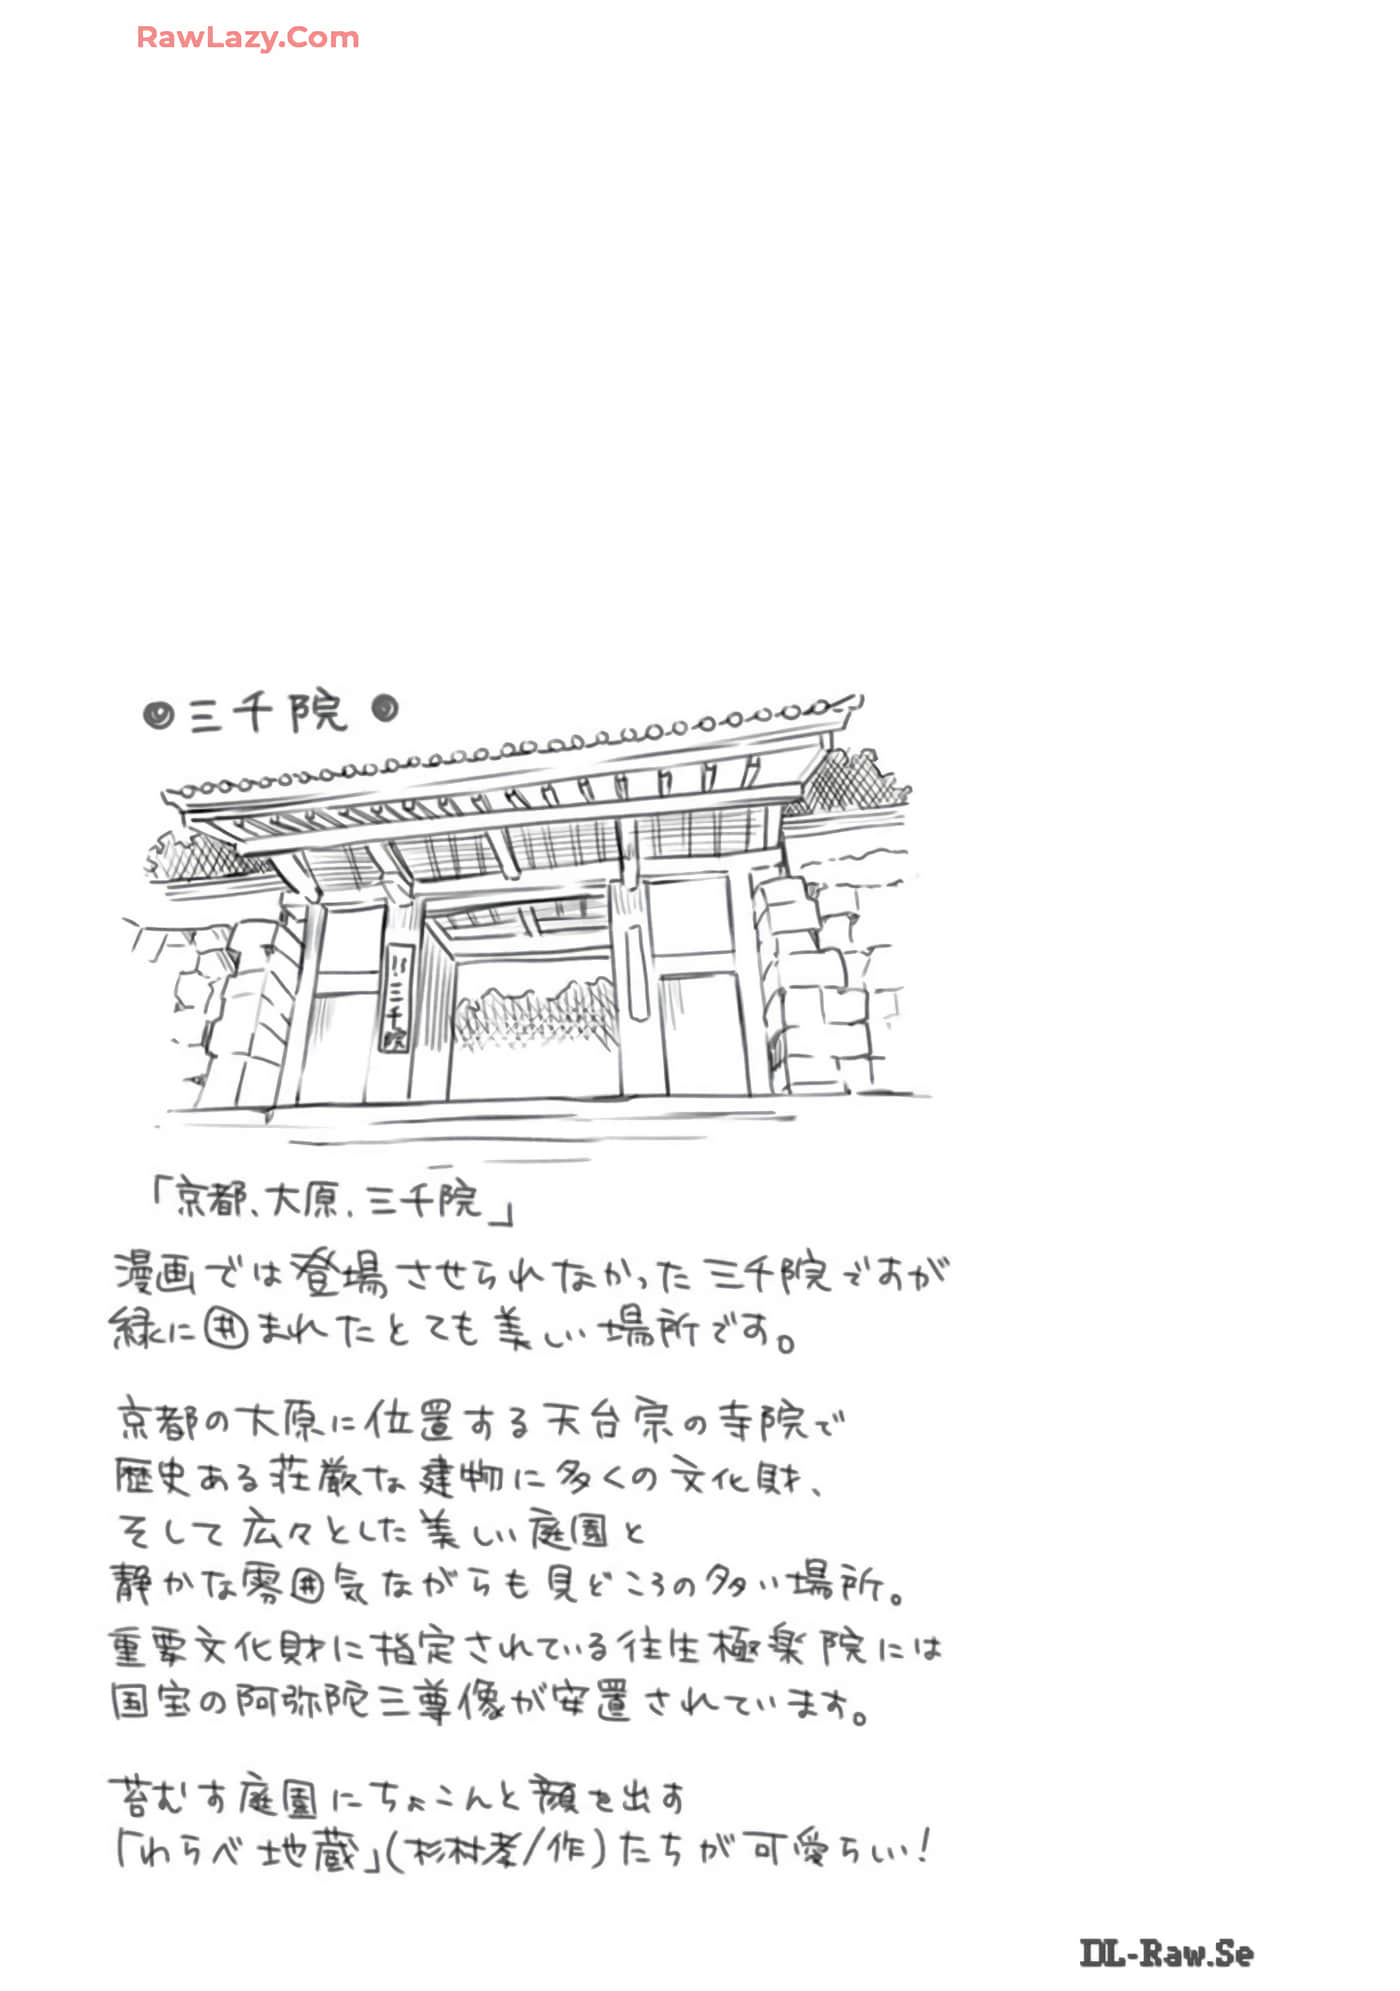 RawLazy.Com
◎三千院◎
三千院
「京都、大原、三千院」
漫画では登場させられなかった三千院ですが
緑に囲まれたとても美しい場所です。
京都の大原に位置する天台宗の寺院で
歴史ある荘厳な建物に多くの文化財、
そして広々とした美しい庭園と
静かな雰囲気ながらも見どころの多い場所。
重要文化財に指定されている往生極楽院には
国宝の阿弥陀三尊像が安置されています。
苔むす庭園にちょこんと顔を出す
「わらべ地蔵」(杉村孝/作)たちが可愛らしい!
DL-Raw.Se